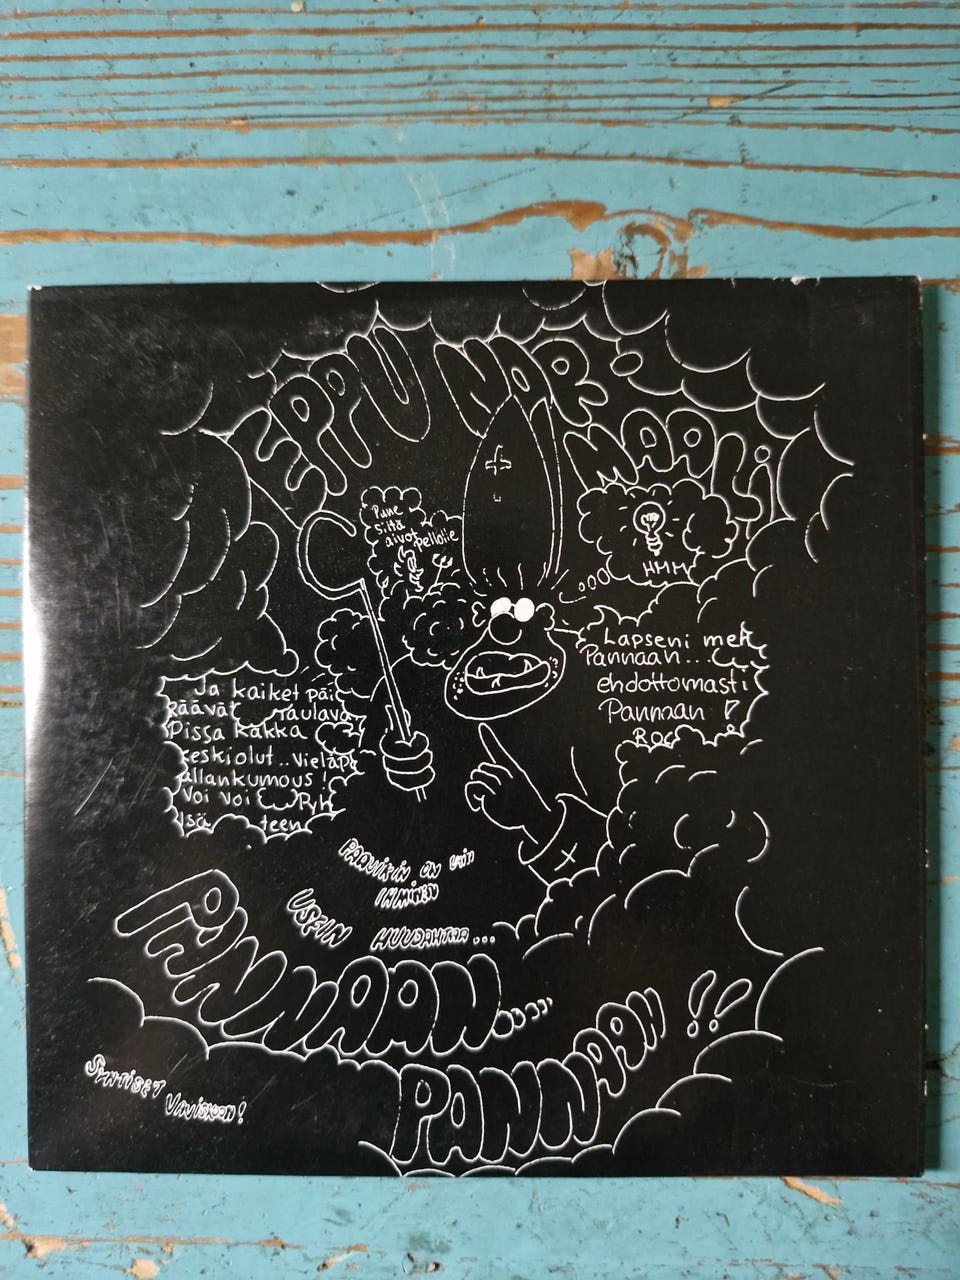 EPPU NOR
MAALI
Pune
siitä
aivot
pellolle
HMM
Lapseni meh
Pannaan...
ehdottomasti
Pannaan !
ROC
Ja kaiket päi
räävät Taulava
Pissa kakka
keskiolut.. Vieläpä
allankumous!
Voi voi
Isä teen
PAAVIKIN ON VAIN
IHMINEN
USEIN HUUDAHTAA...
PANNAAN....
PANNAAN!!
SYNTISET VAVISKOON!